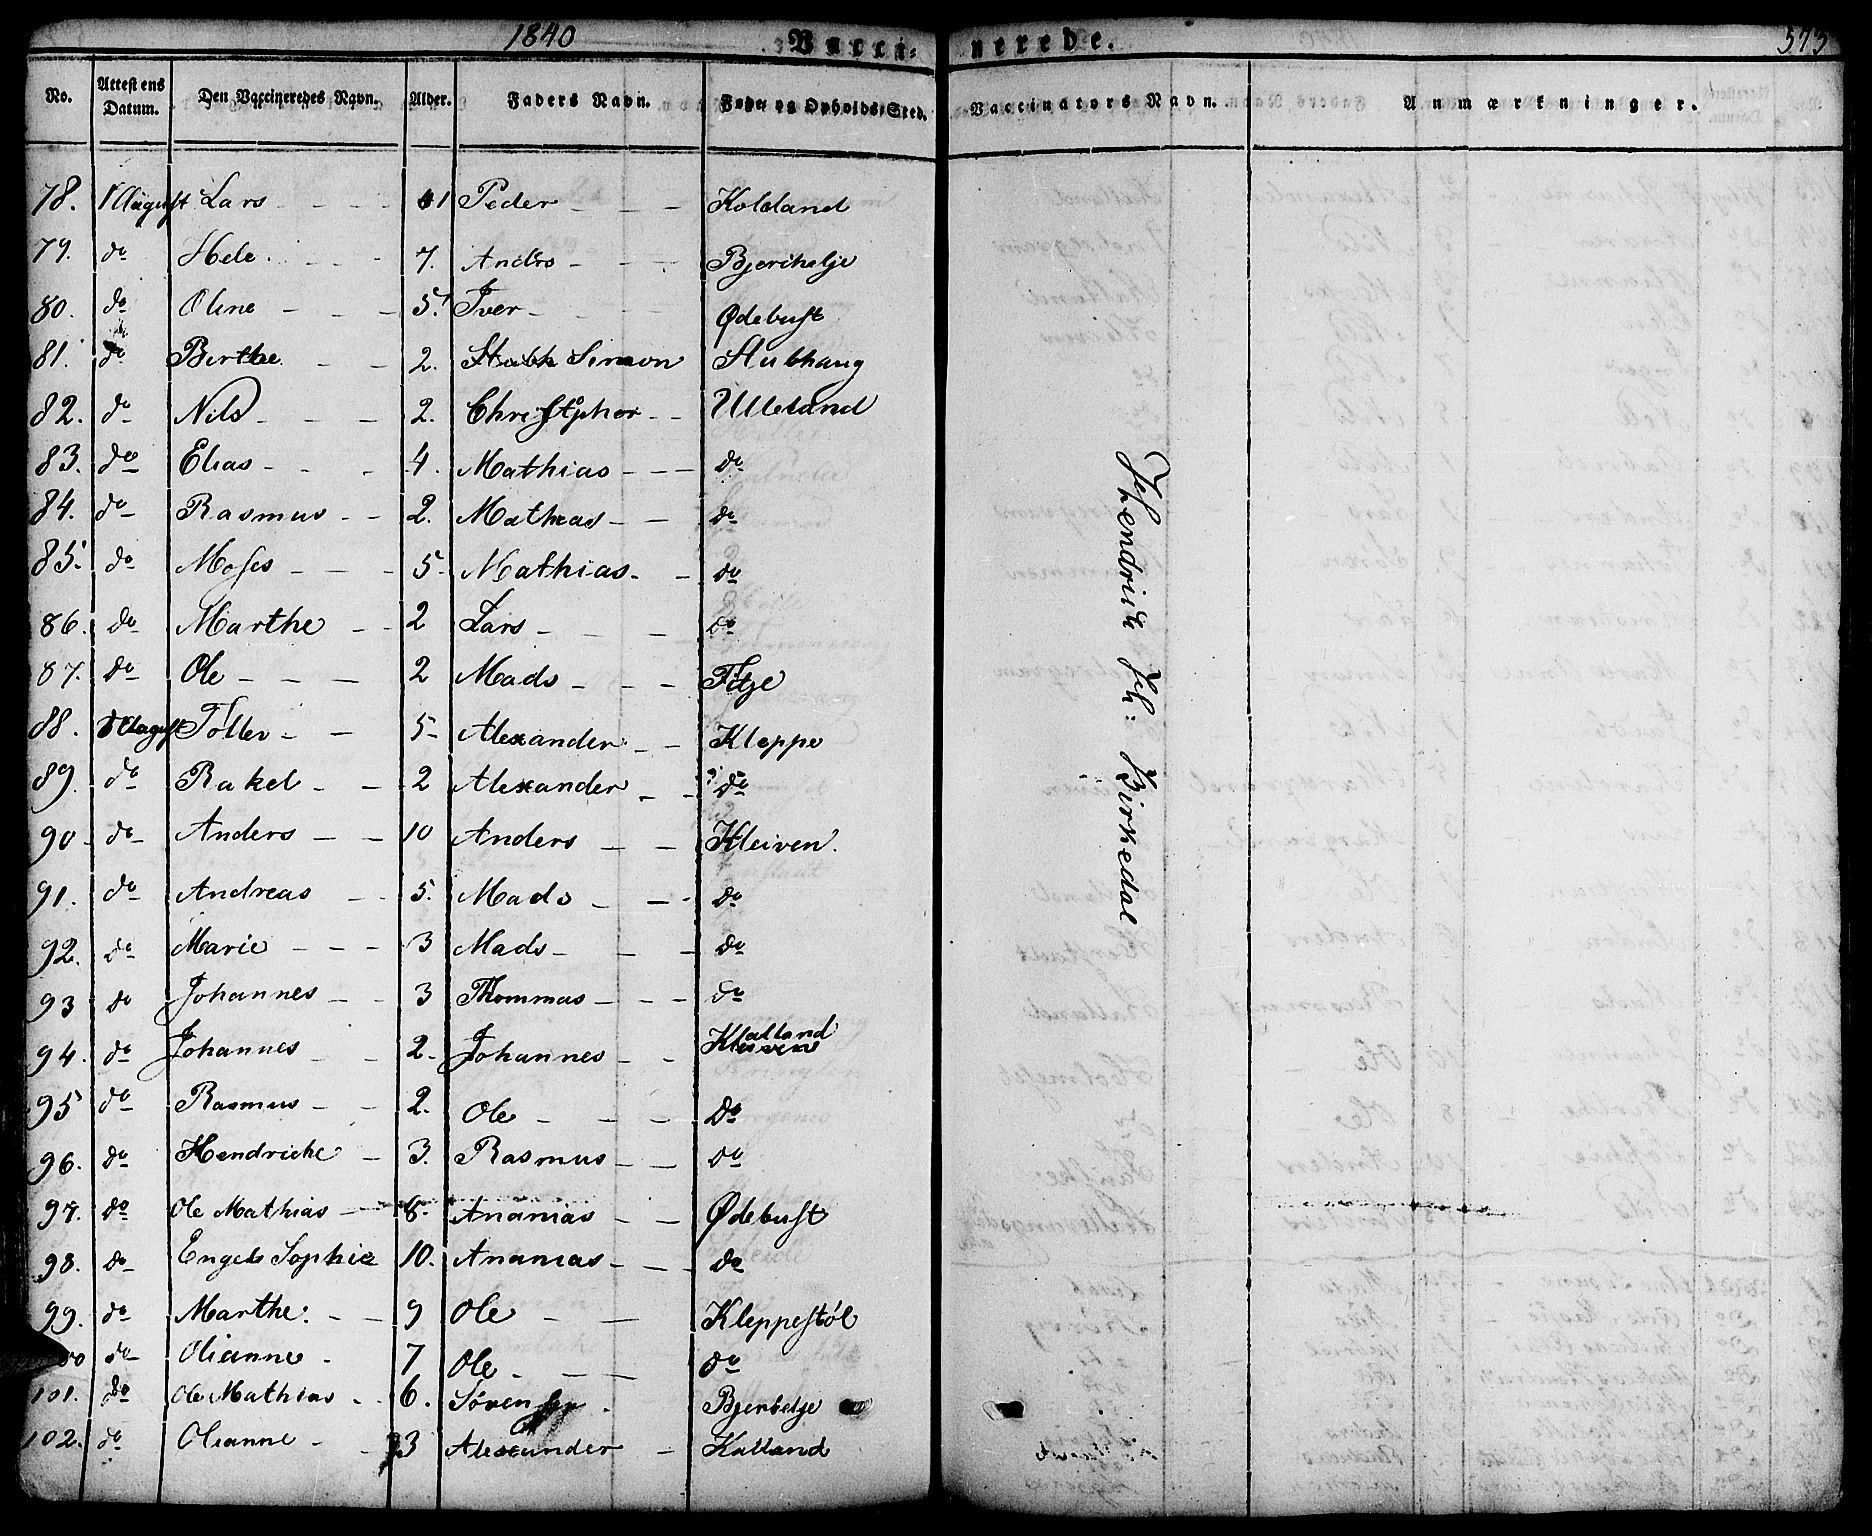 1840 Vacci- nerede. 573
No. Attestens Datum. Den Vaccineredes Navn. Alder. Faders Navn. Føde og Opholds-Sted. Vaccinators Navn. Anmærkninger.
78. August Lars - - - 1 Peder - - - Kolsland
79. do Hele. - - - 7. Anders - - -
80. do Oline - - - 5. Iver - - - Ødebust
81. do Birthe - - 2. Simon Stubhaug
82. do Nils - - - 2. Christopher - - Ulleland
83. do Elias - - - 4. Mathias - - - do
84. do Rasmus - - 2. Mathias - - do
85. do Moses - - - 5- Mathias - - do
86. do Marthe - - 2 Lars - - - do
87. do Ole - - - 2 Mads - - - Fitje
88. August Tollev - - 5- Alexander - - Kleppe
89. do Rakel - - 2 Alexander - - do
90 do Anders - - 10 Anders - - Kleiven.
91. do Andreas - - 5. Mads - - - do
92. do Marie - - - 3 Mads - - - do
93 do Johannes - - 3 Thommas - - - do
94. do Johannes - - 2. Johannes - - Katland
95 do Rasmus - - 2. Ole - - - do
96. do Hendrikke - 3. Rasmus - - do
97. do Ole Mathias - 8. Ananias - - Ødebust
98. do Engel Sophie 10. Ananias - - - do
99. do Marthe. - 9 Ole - - Kleppestøl
100 do Olianne - 7 Ole - - - do
101. do Ole Mathias - 6. Sören
102. do Olianne - - 3 Alexander - Katland
Hendrich Birkedal